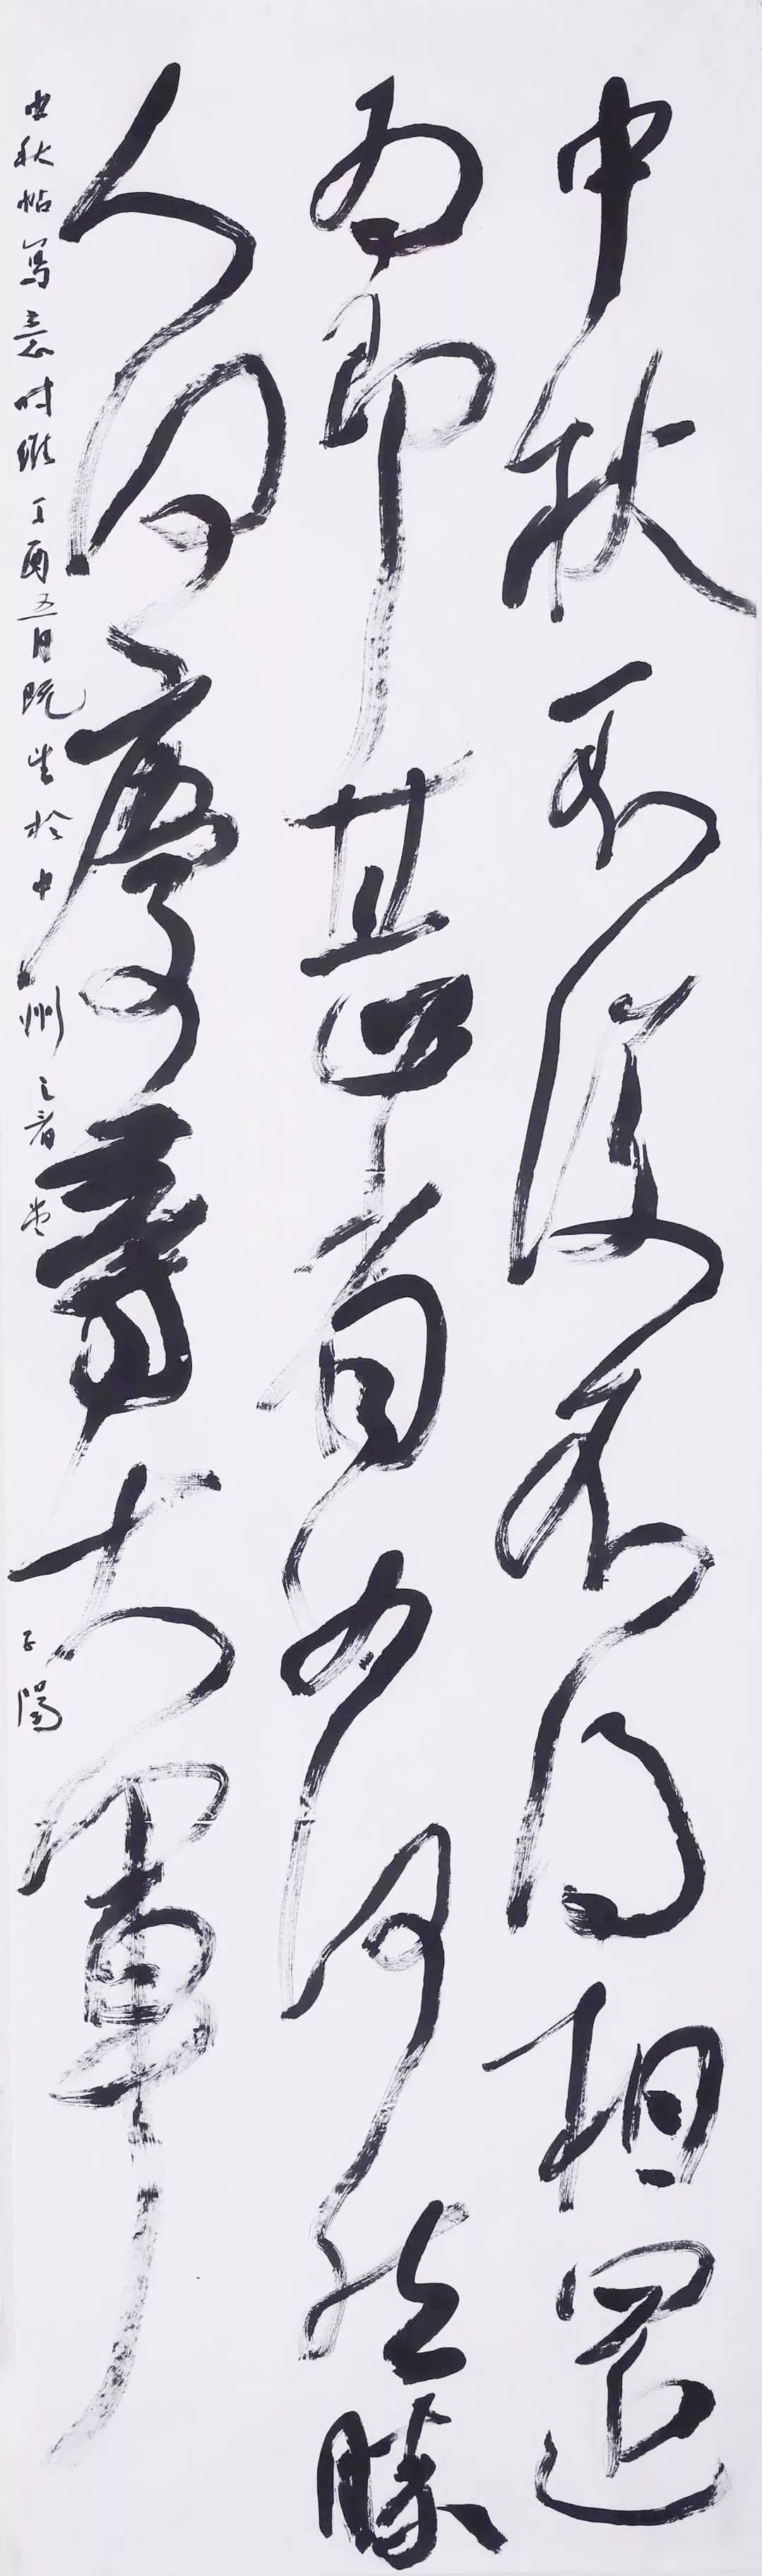 中秋不復不得相還
為即甚省如何然勝
人何慶等大軍
中秋帖寫意時維丁酉五月既望於中州之看堂
子陽